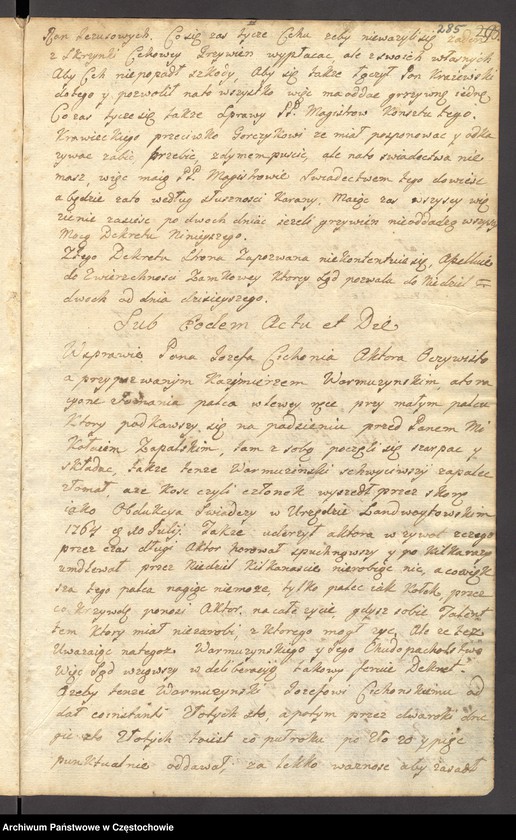 285
Pan Lezusowych. Co się zas tycze Cechu zeby niewazyli się zadnej
z Skrzynki Cechowey Grzywien wypłacac, ale z swoich własnych
Aby Cech niepopadł szkody, Aby się takze łączył Pan Kreiewski
do tego y pozwolił na to wszystko więc ma oddac grzywnę iednę
Co zas tycze się takze Sprawy PP. Magistrow Konsztu tego.
Krawieckiego przeciwko Gorczykowi ze miał posponowac y odka
zywac zabic, przebic, z dymem puscic, ale na to swiadectwa nie
masz, więc maią PP. Magistrowie Swiadectwem tego dowiesc
a będzie za to według słusznosci Karany. Maiąc zas wszyscy wię
zienie zasiesc po dwoch dniach iezeli grzywien nieoddadzą wszyscy
Mocą Dekretu Ninieyszego.
Z tego Dekretu Strona Zapozwana niekontentuie się, Apelluie
do Zwierzchnosci Zamkowey Ktorey Sąd pozwala do Niedziel
dwoch od dnia dzisieyszego.
Sub eodem Actu et Die
W sprawie Pana Jozefa Cichonia Aktora Oczywisto
a przypozwanym Kazimierzem Warmuzynskim, ato ra
cyone złomania palca w lewey ręce przy małym palcu
Ktory podkawszy się na padzieniu przed Panem Mi
Kołaiem Zapalskim, tam z sobą poczęli się szarpac y
składac, takze tenze Warmuzinski schwyciwszy za palec
złomał, aze kosc czyli członek wyszedł przez skorę
iako Obdukcya Swiadczy w Urzędzie Landwoytowskim
1764 d. 10 Julij. Takze uderzył aktora w zywot z czego
przez czas długi Aktor chorował spuchnąwszy y po kilka razy
umdlewał przez Niedziel Kilkanascie nierobiąc nic, a co więk
sza tego palca nagiąc niemoze, tylko palec iak Kołek, przez
co krzywdę ponosi Aktor, na całe zycie, gdysz sobie Talen
tem Ktory miał niezarobi, z ktorego mogł zyc, Ale ze tez
Uwazaiąc na tegosz Warmuzynskiego y Jego Chudopacholstwo
Więc Sąd wziąwszy w deliberacyą takowy feruie Dekret
Azeby tenze Warmuzynski Jozefowi Cichonskiemu od
dał Złotych sto, a potym przez
Złotych co puł roku po Zło 20 y pięc
punktualnie oddawał, za lekko wazność aby zasiadł
Archiwum Państwowe w Częstochowie